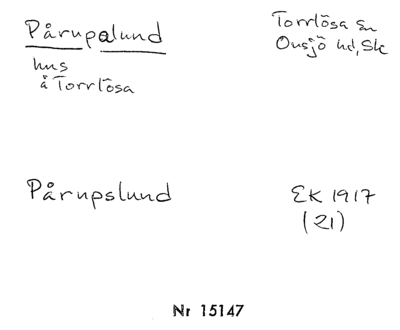 Pårupalund
Torrlösa sn
Onsjö hd, Sk
hus
å Torrlösa
Pårupslund
EK 1917
(21)
Nr 15147